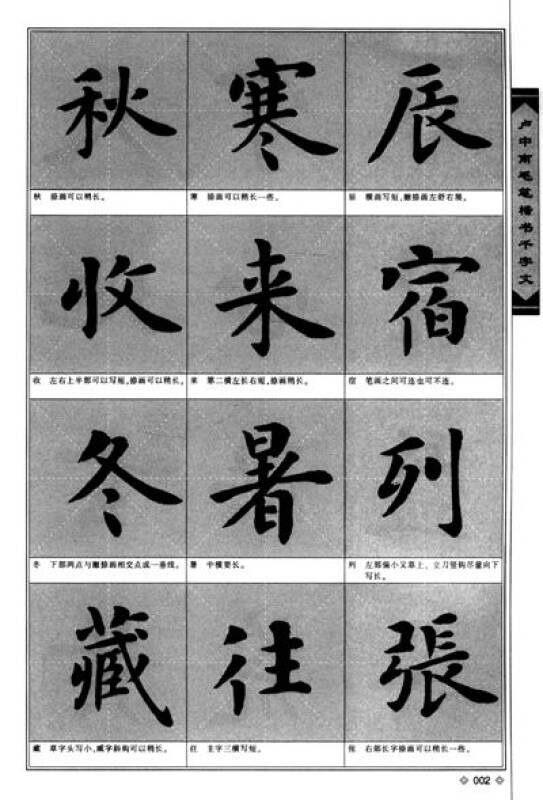 秋
寒
辰
秋 捺画可以稍长。
寒 捺画可以稍长一些。
辰 横画写短,撇捺画左舒右展。
收
来
宿
收 左右上半部可以写短,捺画可以稍长。
来 第二横左长右短,捺画稍长。
宿 笔画之间可连也可不连。
冬
暑
列
冬 下部两点与撇捺画相交点成一垂线。
暑 中横要长。
列 左部偏小又靠上,立刀竖钩尽量向下
写长。
藏
往
張
藏 草字头写小,臧字斜钩可以稍长。
往 主字三横写短。
张 右部长字捺画可以稍长一些。
卢中南毛笔楷书千字文
002